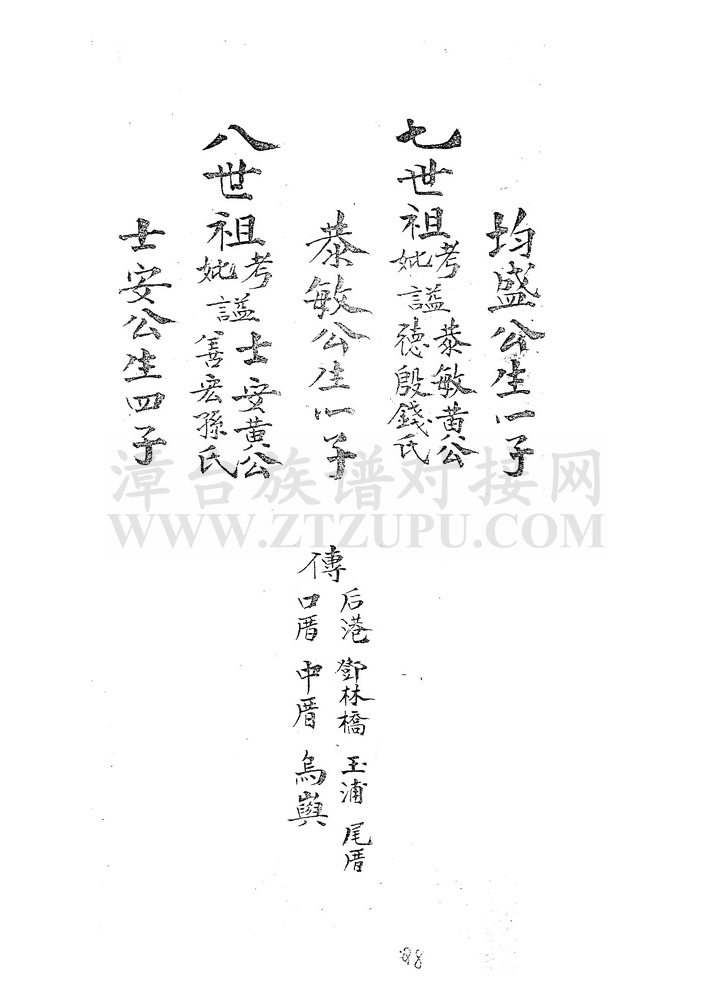 均盛公生一子
七世祖考諡恭敏黃公
妣諡德殷錢氏
恭敏公生一子
傳
后港 鄧林橋 玉浦 尾厝
口厝 中厝 烏嶼
八世祖考諡士安黃公
妣諡善宏孫氏
士安公生四子
漳台族谱对接网
WWW.ZTZUPU.COM
98